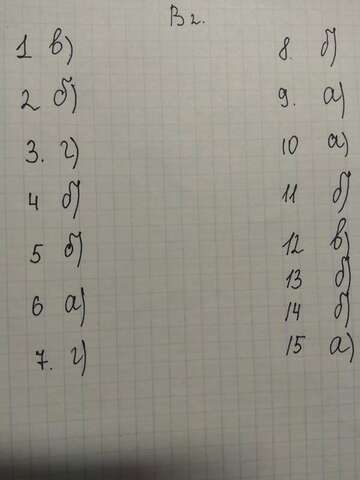 В 2.
1 в)
2 б)
3. г)
4 б)
5 б)
6 а)
7. г)
8. б)
9. а)
10 а)
11 б)
12 в)
13 б)
14 б)
15 а)